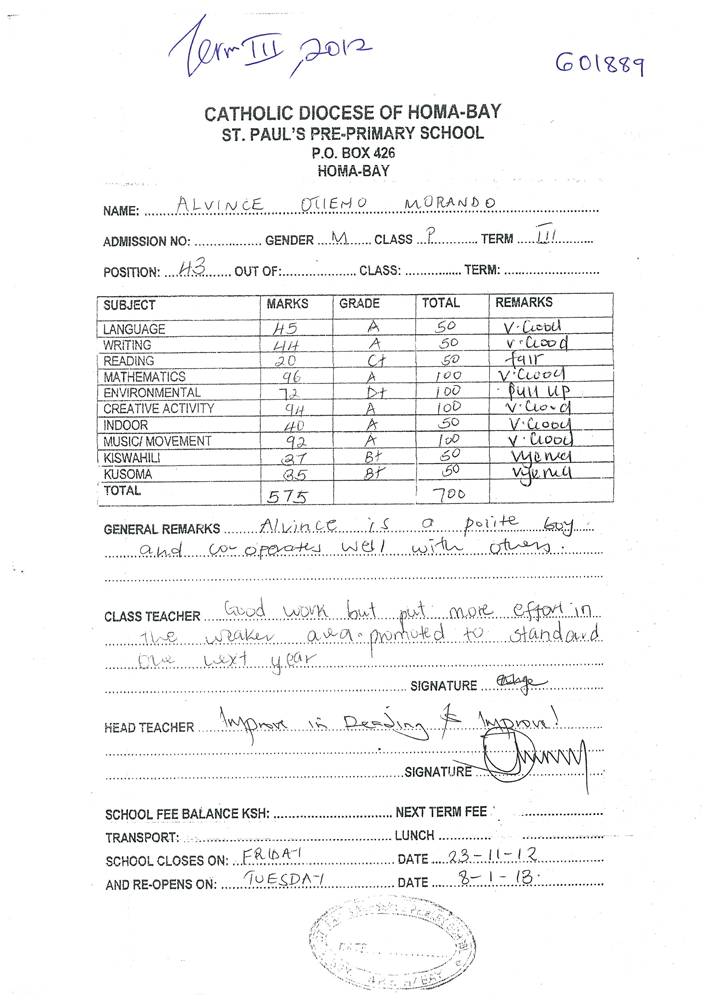 Term III, 2012
G01889
CATHOLIC DIOCESE OF HOMA-BAY
ST. PAUL'S PRE-PRIMARY SCHOOL
P.O. BOX 426
HOMA-BAY
NAME: ALVINCE OTIENO MORANDO
ADMISSION NO: ................. GENDER M CLASS P TERM III
POSITION: 43 OUT OF: ................. CLASS: ............... TERM: .................
SUBJECT MARKS GRADE TOTAL REMARKS
LANGUAGE 45 A 50 V.Good
WRITING 44 A 50 V.Good
READING 20 C+ 50 fair
MATHEMATICS 96 A 100 V.Good
ENVIRONMENTAL 72 D+ 100 Pull UP
CREATIVE ACTIVITY 94 A 100 V.Good
INDOOR 40 A 50 V.Good
MUSIC/ MOVEMENT 92 A 100 V.Good
KISWAHILI 37 B+ 50 Vyema
KUSOMA 35 B+ 50 Vyema
TOTAL 575 700
GENERAL REMARKS Alvince is a polite boy
and co-operates well with others.
CLASS TEACHER Good work but put more effort in
the weaker area. promoted to standard
one next year
SIGNATURE
HEAD TEACHER Improve in Reading & Improve!
SIGNATURE
SCHOOL FEE BALANCE KSH: ................. NEXT TERM FEE .................
TRANSPORT: ................. LUNCH .................
SCHOOL CLOSES ON: FRIDAY DATE 23-11-12
AND RE-OPENS ON: TUESDAY DATE 8-1-13.
DATE